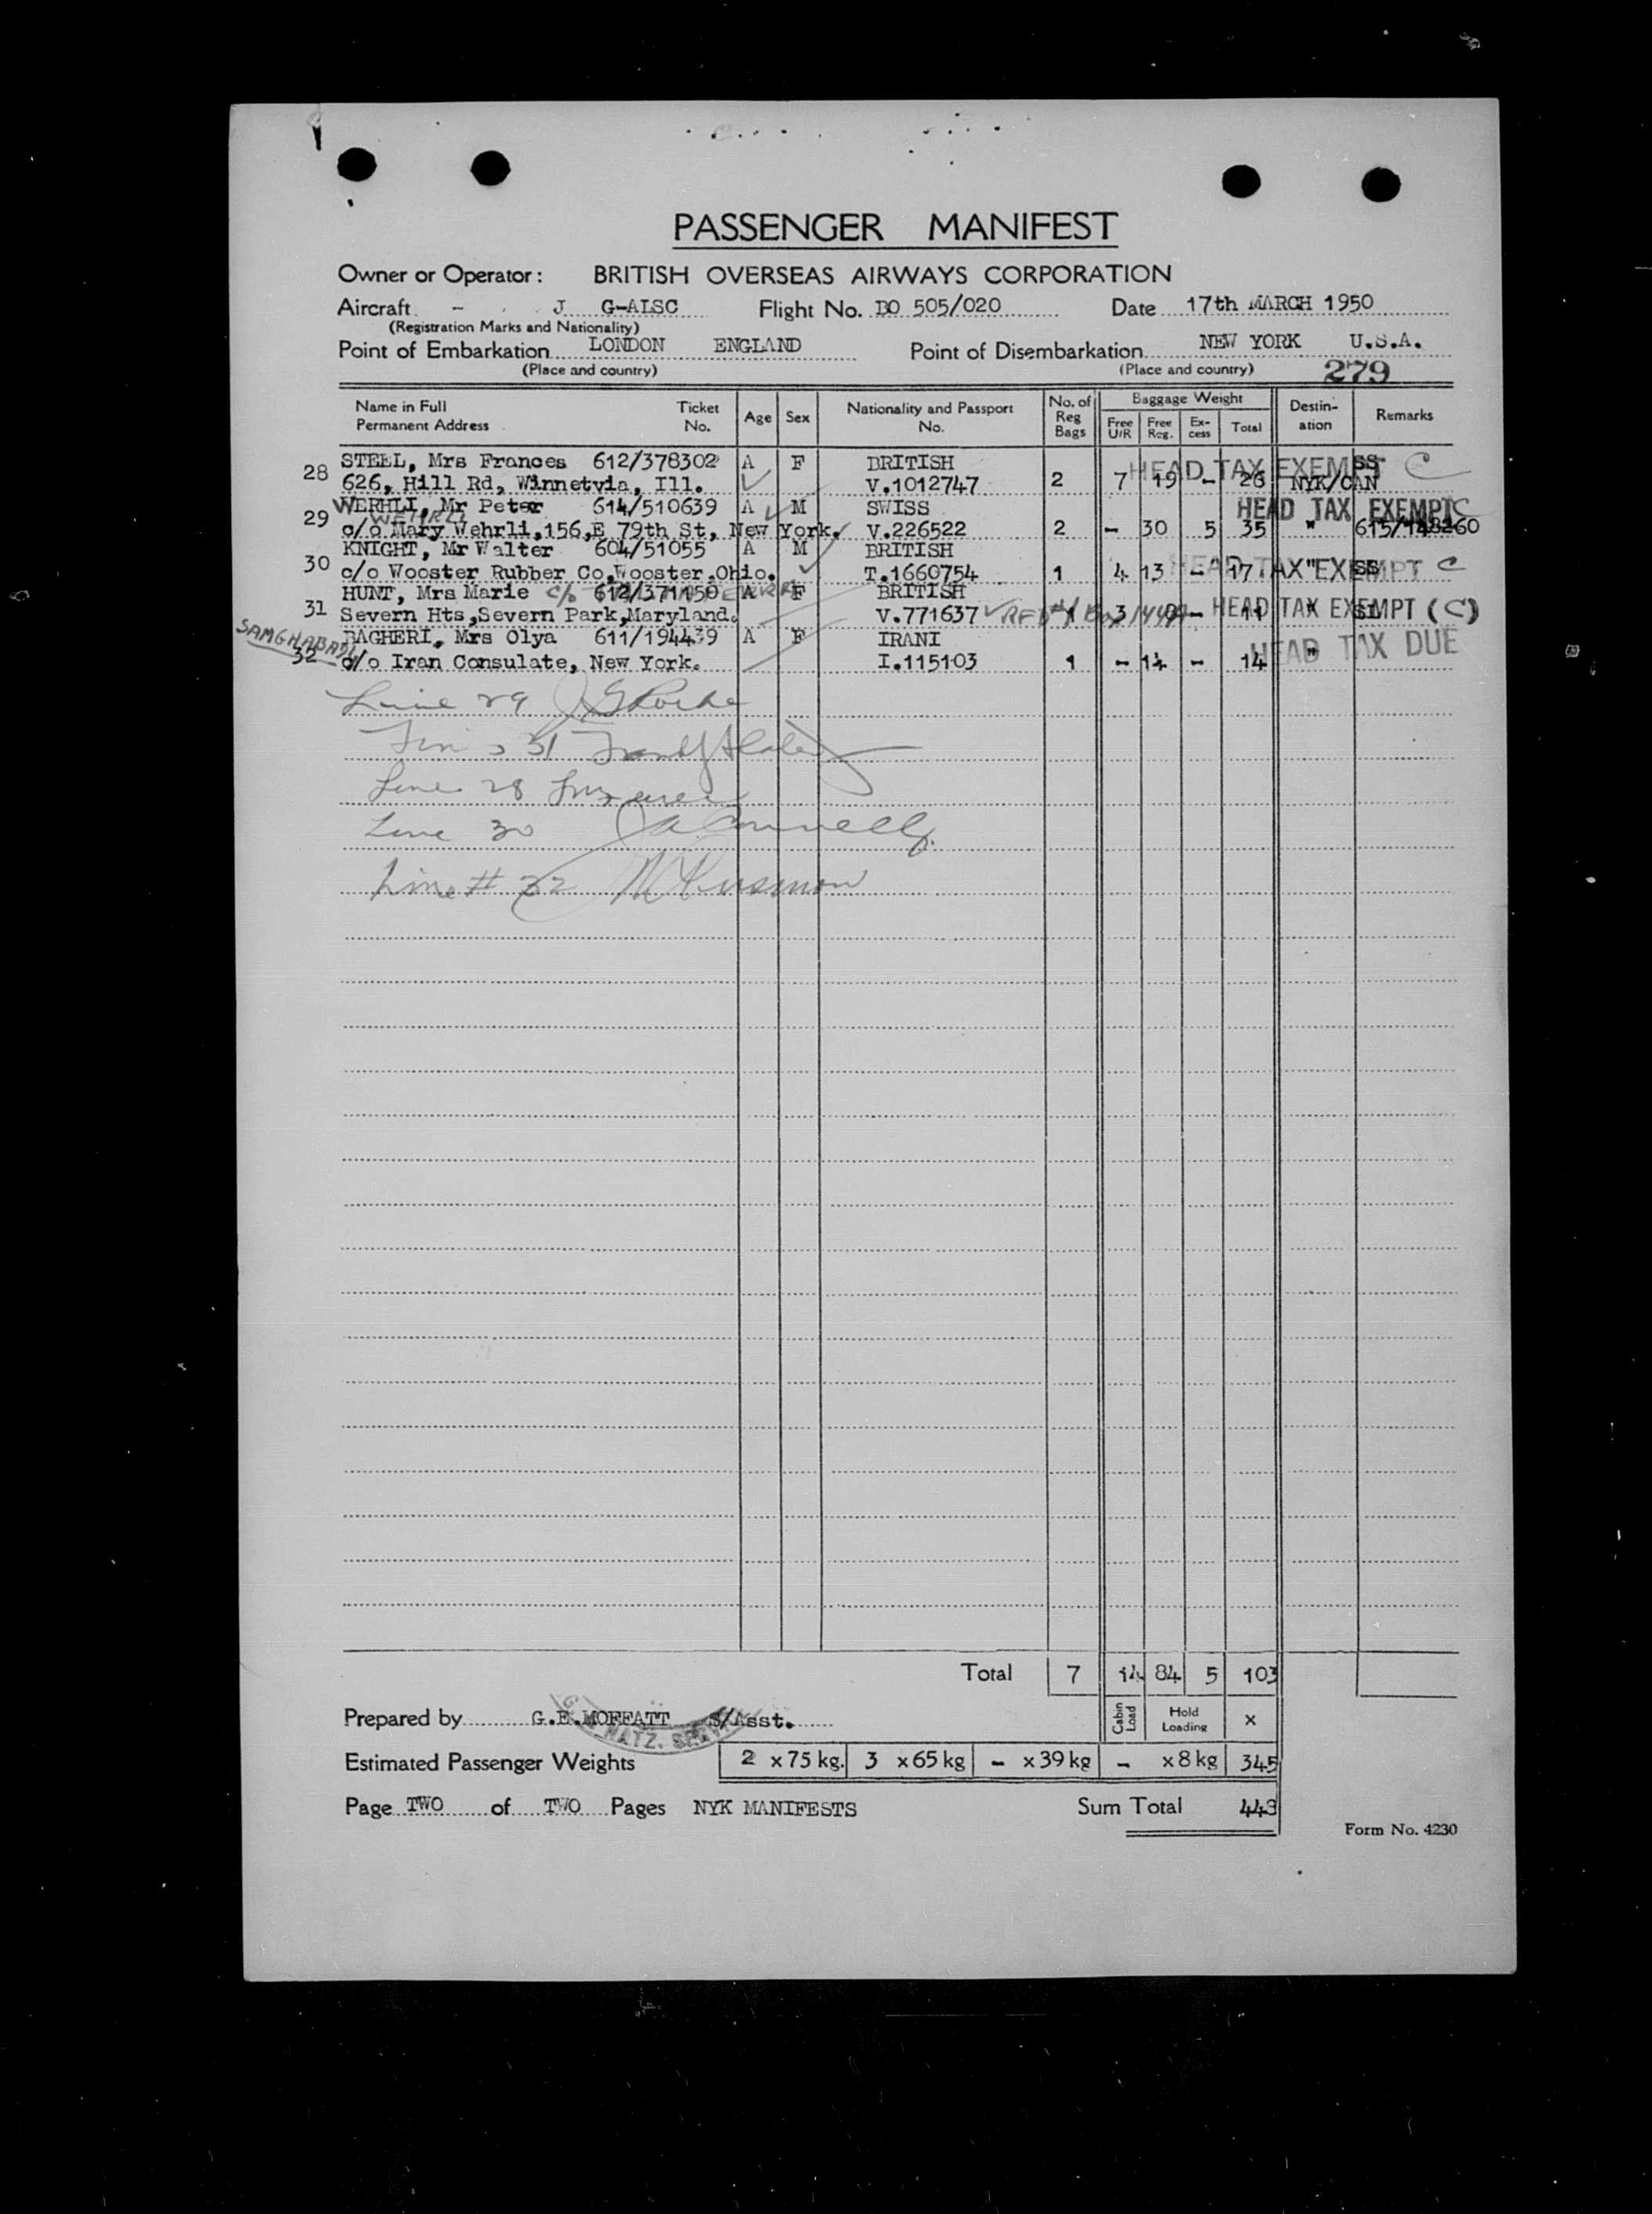 PASSENGER MANIFEST
Owner or Operator: BRITISH OVERSEAS AIRWAYS CORPORATION
Aircraft - J G-ALSC Flight No. BO 505/020 Date 17th MARCH 1950
(Registration Marks and Nationality)
Point of Embarkation LONDON ENGLAND Point of Disembarkation NEW YORK U.S.A.
(Place and country) (Place and country) 279
Name in Full Permanent Address Ticket No. Age Sex Nationality and Passport No. No. of Reg Bags Baggage Weight Free U/R Free Reg. Ex-cess Total Destin-ation Remarks
28 STEEL, Mrs Frances 612/378302 A F BRITISH HEAD TAX EXEMPT SS C
626, Hill Rd, Winnetvia, Ill. V.1012747 2 7 19 - 26 NYK/CAN
29 WERHLI, Mr Peter 614/510639 A M SWISS HEAD TAX EXEMPT C
WEHRLI
c/o Mary Wehrli,156,E 79th St, New York. V.226522 2 - 30 5 35 " 615/148260
KNIGHT, Mr Walter 604/51055 A M BRITISH
30 c/o Wooster Rubber Co,Wooster,Ohio. T.1660754 1 4 13 - 17 " SS HEAD TAX EXEMPT C
HUNT, Mrs Marie c/o 612/371150 A F BRITISH
31 Severn Hts,Severn Park,Maryland. V.771637 1 3 - 11 HEAD TAX EXEMPT (C)
SAMGHABADI
BAGHERI, Mrs Olya 611/194439 A F IRANI HEAD TAX DUE
32 c/o Iran Consulate, New York. I.115103 1 - 14 - 14 "
Line 29
Line 31
Line 28
Line 30 JA Connelly
Line # 32
Total 7 14 84 5 103
Cabin Load Hold Loading x
Prepared by G.E.MOFFATT S/Asst.
Estimated Passenger Weights 2 x 75 kg. 3 x 65 kg - x 39 kg - x 8 kg 345
Page TWO of TWO Pages NYK MANIFESTS Sum Total 448
Form No. 4230